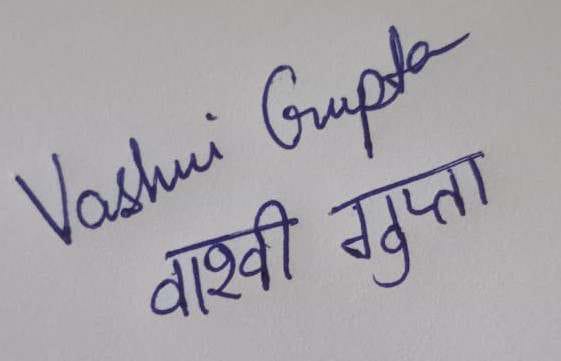 Vashvi Gupta
वाश्वी गुप्ता